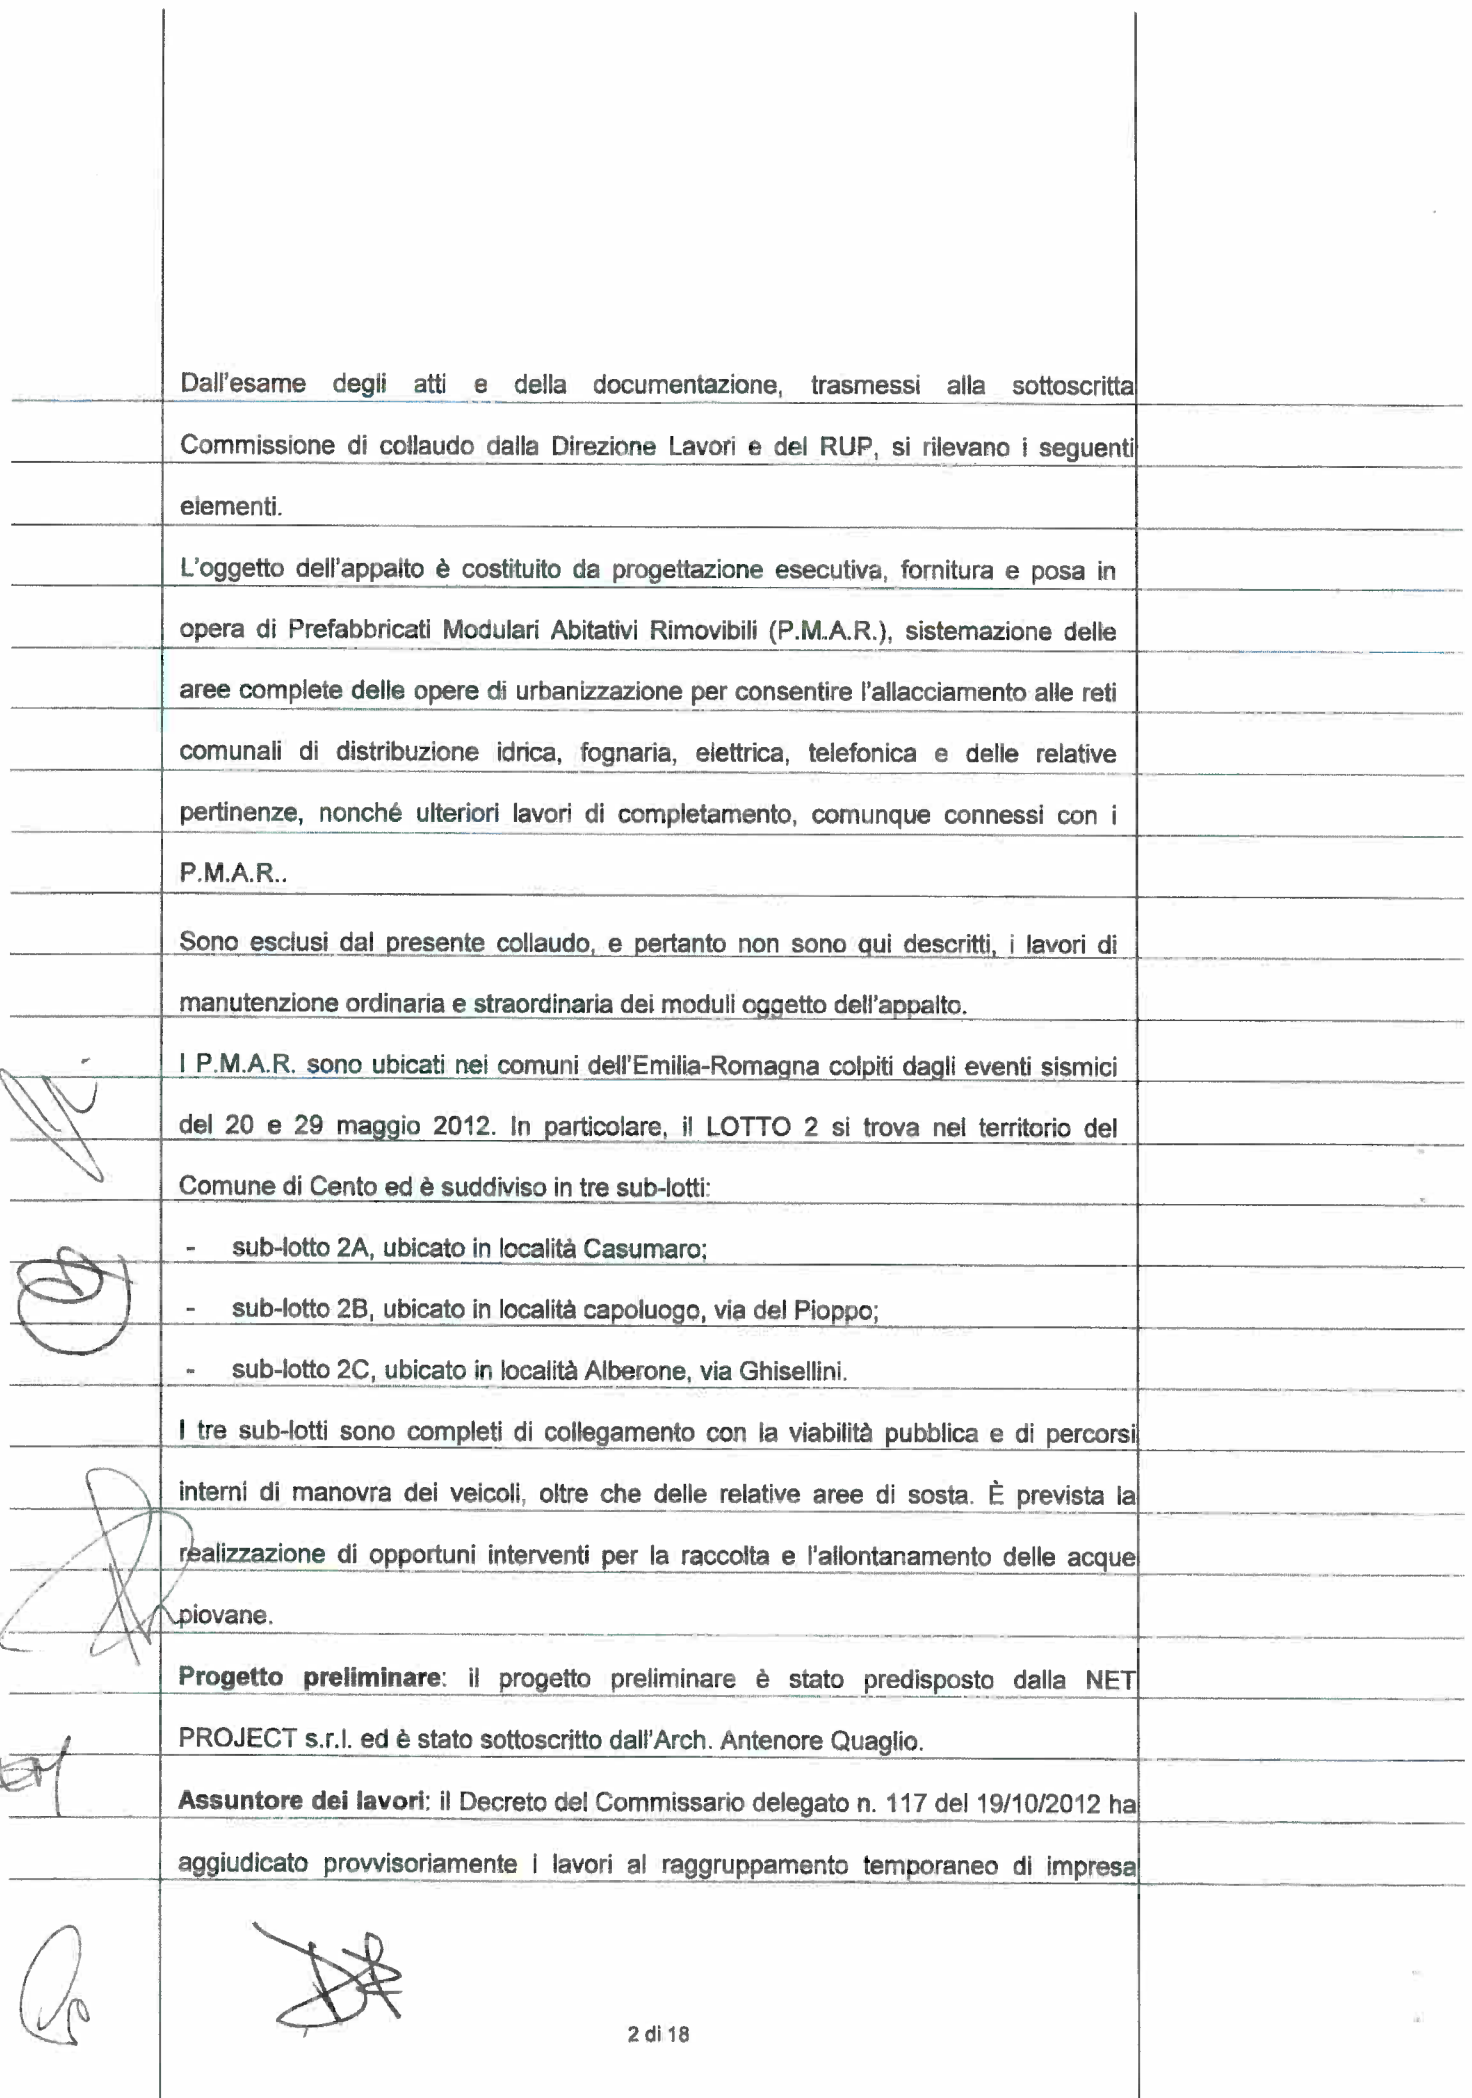 Dall'esame degli atti e della documentazione, trasmessi alla sottoscritta
Commissione di collaudo dalla Direzione Lavori e del RUP, si rilevano i seguenti
elementi.
L'oggetto dell'appalto è costituito da progettazione esecutiva, fornitura e posa in
opera di Prefabbricati Modulari Abitativi Rimovibili (P.M.A.R.), sistemazione delle
aree complete delle opere di urbanizzazione per consentire l'allacciamento alle reti
comunali di distribuzione idrica, fognaria, elettrica, telefonica e delle relative
pertinenze, nonché ulteriori lavori di completamento, comunque connessi con i
P.M.A.R..
Sono esclusi dal presente collaudo, e pertanto non sono qui descritti, i lavori di
manutenzione ordinaria e straordinaria dei moduli oggetto dell'appalto.
I P.M.A.R. sono ubicati nei comuni dell'Emilia-Romagna colpiti dagli eventi sismici
del 20 e 29 maggio 2012. In particolare, il LOTTO 2 si trova nel territorio del
Comune di Cento ed è suddiviso in tre sub-lotti:
- sub-lotto 2A, ubicato in località Casumaro;
- sub-lotto 2B, ubicato in località capoluogo, via del Pioppo;
- sub-lotto 2C, ubicato in località Alberone, via Ghisellini.
I tre sub-lotti sono completi di collegamento con la viabilità pubblica e di percorsi
interni di manovra dei veicoli, oltre che delle relative aree di sosta. È prevista la
realizzazione di opportuni interventi per la raccolta e l'allontanamento delle acque
piovane.
Progetto preliminare: il progetto preliminare è stato predisposto dalla NET
PROJECT s.r.l. ed è stato sottoscritto dall'Arch. Antenore Quaglio.
Assuntore dei lavori: il Decreto del Commissario delegato n. 117 del 19/10/2012 ha
aggiudicato provvisoriamente i lavori al raggruppamento temporaneo di impresa
2 di 18